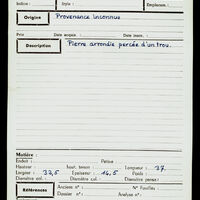 Indice : Style : Emplacem. :
Origine Provenance inconnue
Prix Date acquis. : Date entrée :
Description Pierre arrondie percée d'un trou.
Matière :
Enduit : Patine :
Hauteur : haut. tenon : Longueur : 37.
Largeur : 33,5 Epaisseur : 14,5 Poids :
Diamètre col. : Diamètre panse :
Références Anciens n° : N° Fouilles :
Dossier n° : Analyse n° :